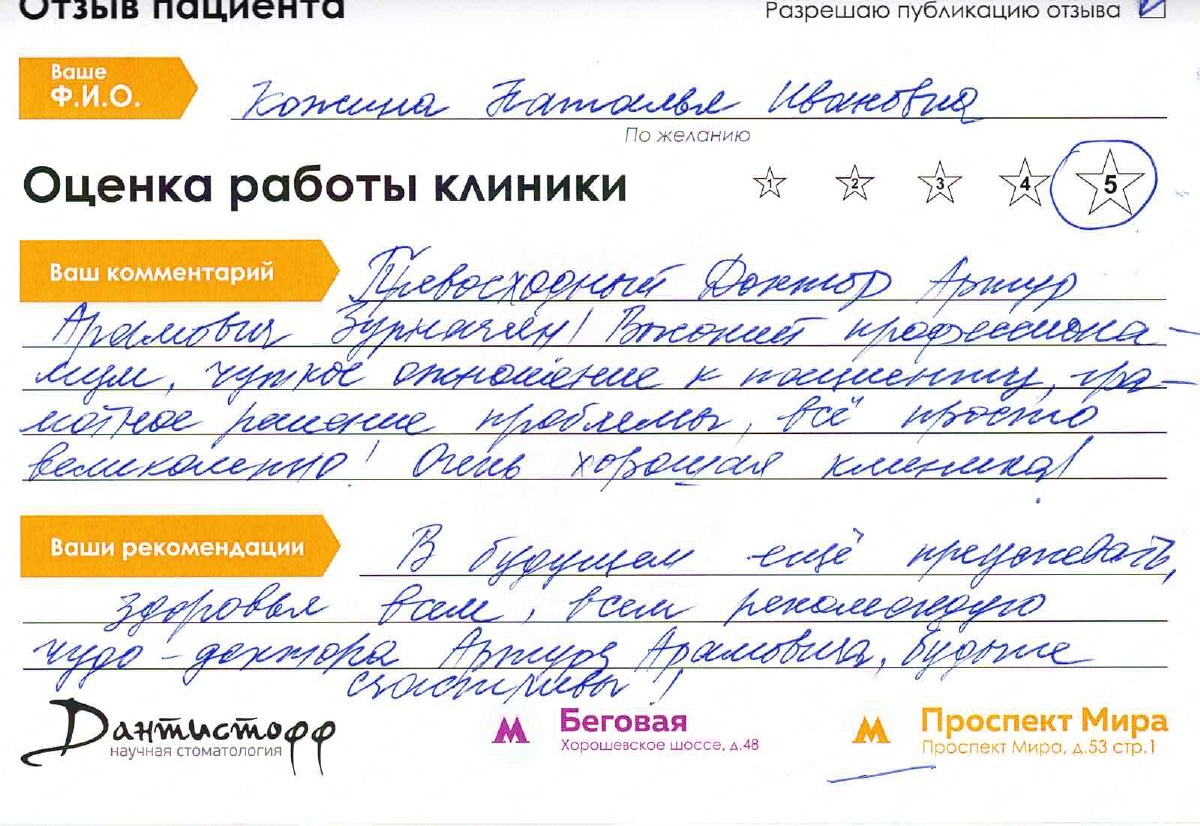 Отзыв пациента
Разрешаю публикацию отзыва
Ваше
Ф.И.О.
Кожина Наталья Ивановна
По желанию
Оценка работы клиники
1 2 3 4 5
Ваш комментарий
Превосходный Доктор Артур
Арамович Зурначян! Высокий профессиона-
лизм, чуткое отношение к пациенту, гра-
мотное решение проблемы, всё просто
великолепно! Очень хорошая клиника!
Ваши рекомендации
В будущем ещё преуспевать,
здоровья всем, всем рекомендую
чудо-доктора Артура Арамовича, будьте
счастливы!
Дантистофф
научная стоматология
Беговая
Хорошевское шоссе, д.48
Проспект Мира
Проспект Мира, д.53 стр.1